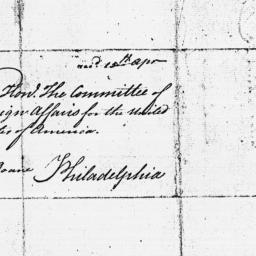 recd 10th Apr
Hon. The Committee of
eign Affairs for the United
tes of America.
Doane Philadelphia